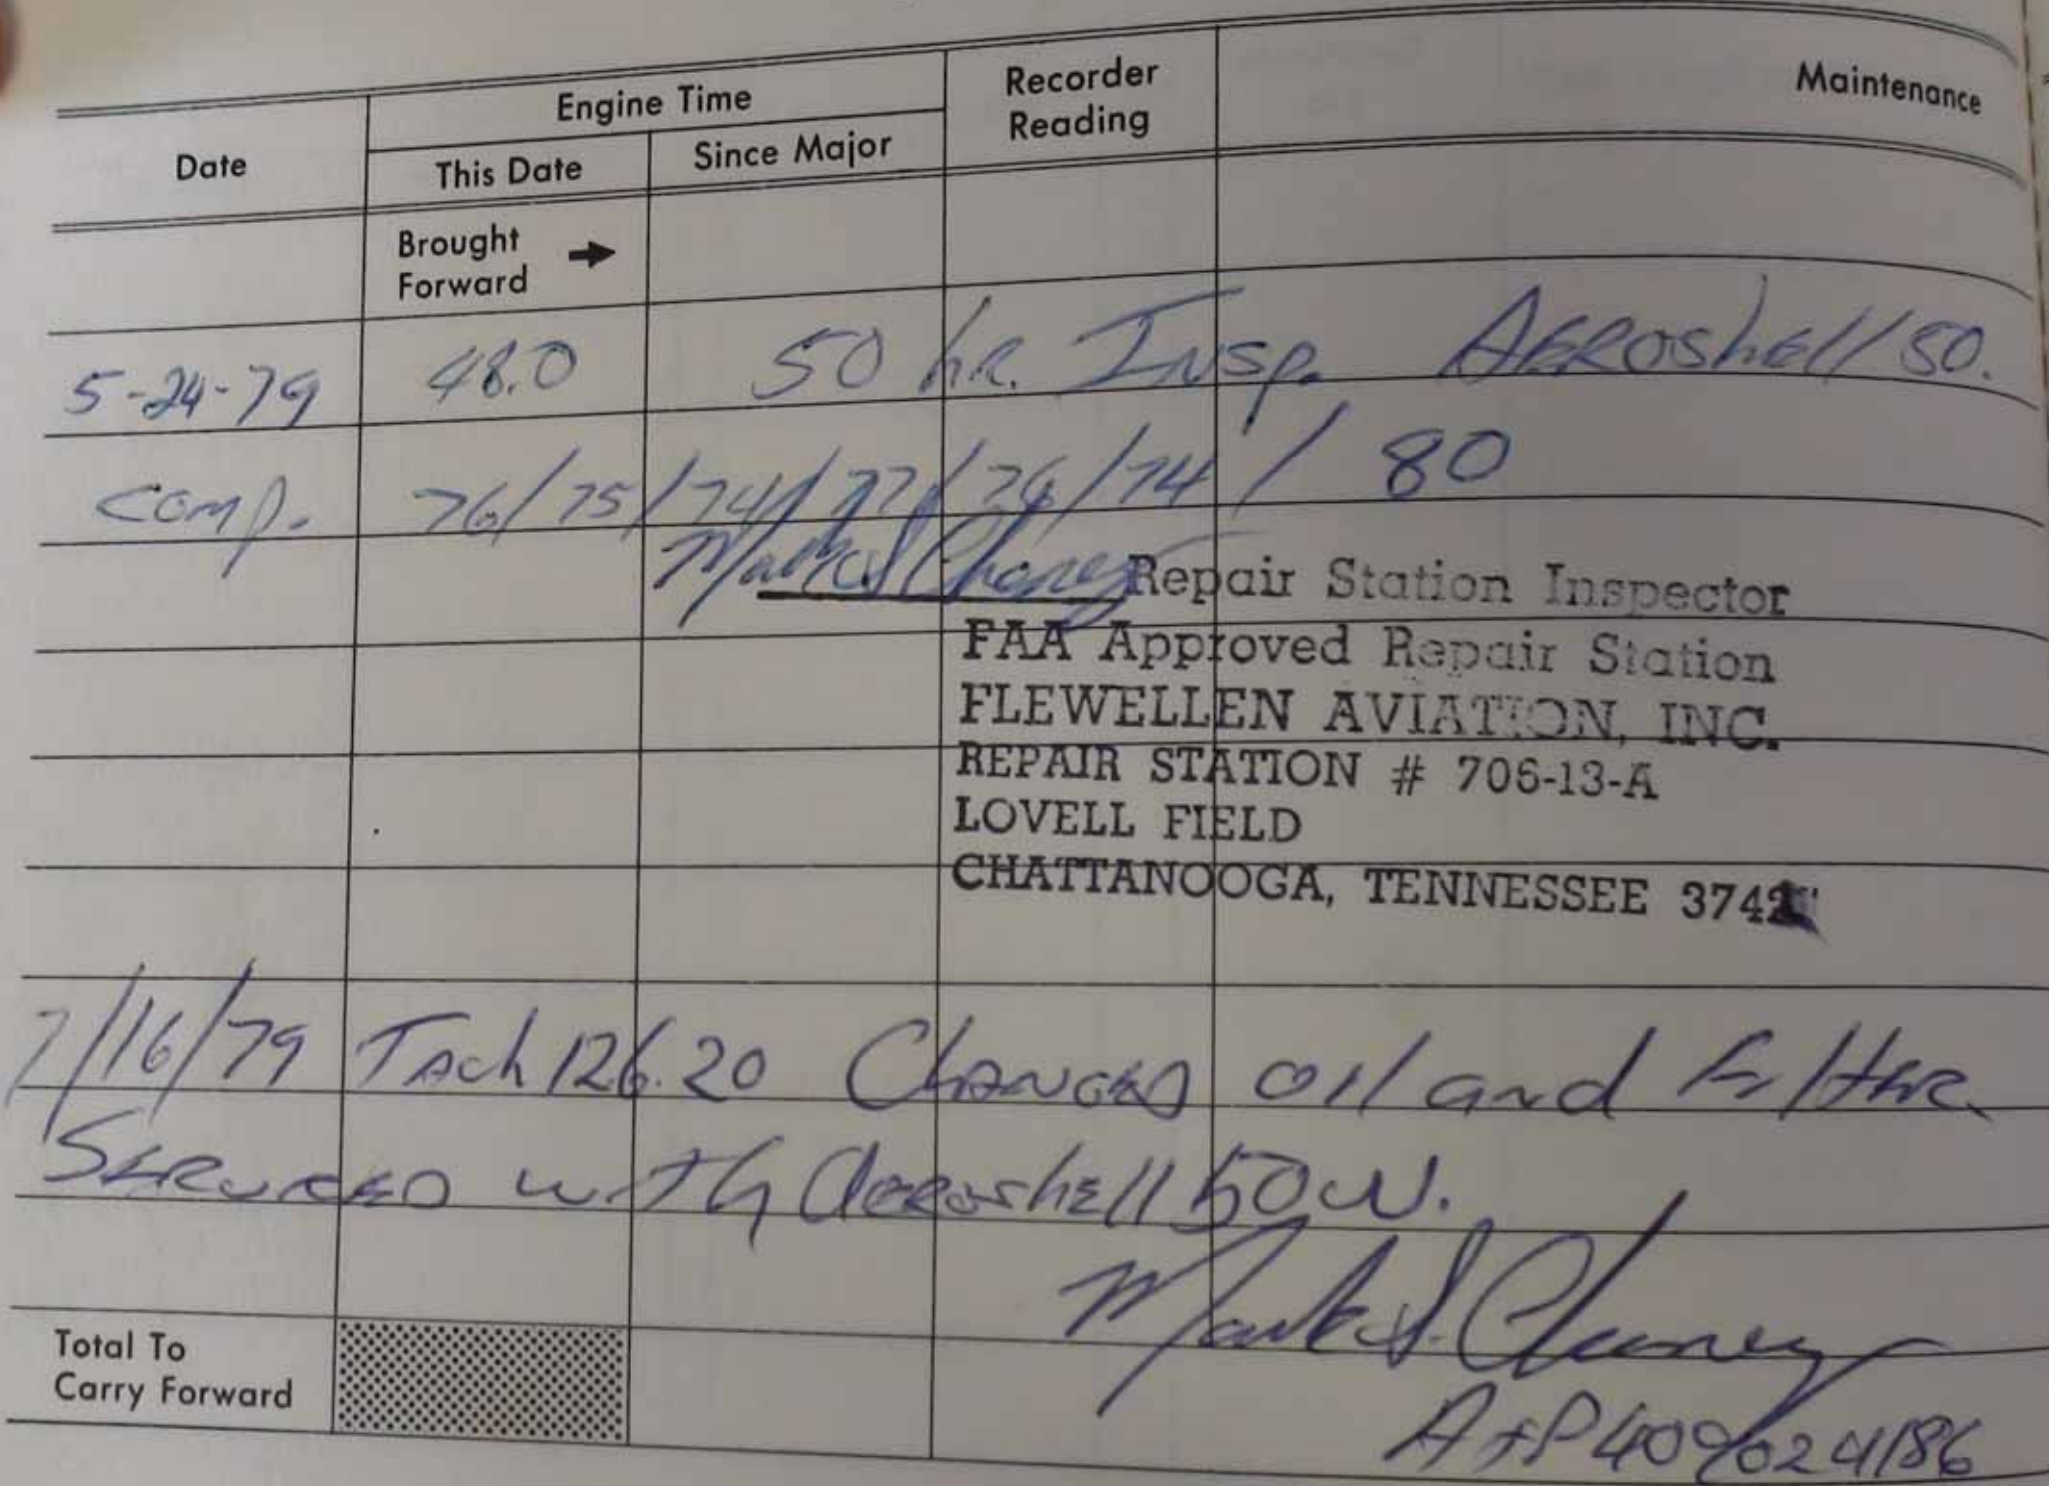 Date Engine Time Recorder Reading Maintenance
This Date Since Major
Brought Forward →
5-24-79 48.0 50 hR. Insp. AEROshell 50.
Comp. 76/75/74/77/76/74 / 80
Mark S Chaney Repair Station Inspector
FAA Approved Repair Station
FLEWELLEN AVIATION, INC.
REPAIR STATION # 706-13-A
LOVELL FIELD
CHATTANOOGA, TENNESSEE 3742
7/16/79 Tach 126.20 Changed oil and filter.
Serviced with Aeroshell 50W.
Mark S. Chaney
Total To Carry Forward
A+P 409024186